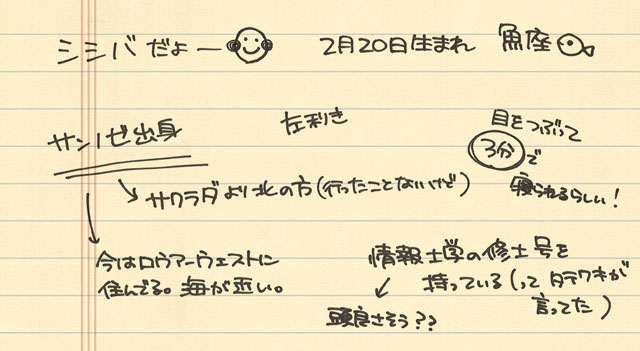 ミミバだよー
2月20日生まれ 魚座
サンノゼ出身
左利き
目をつぶって
3分で
寝られるらしい!
サクラダより北の方(行ったことないけど)
今はロウアーウェストに
住んでる。海が近い。
情報工学の修士号を
持っている(ってタテワキが
言ってた)
頭良さそう??